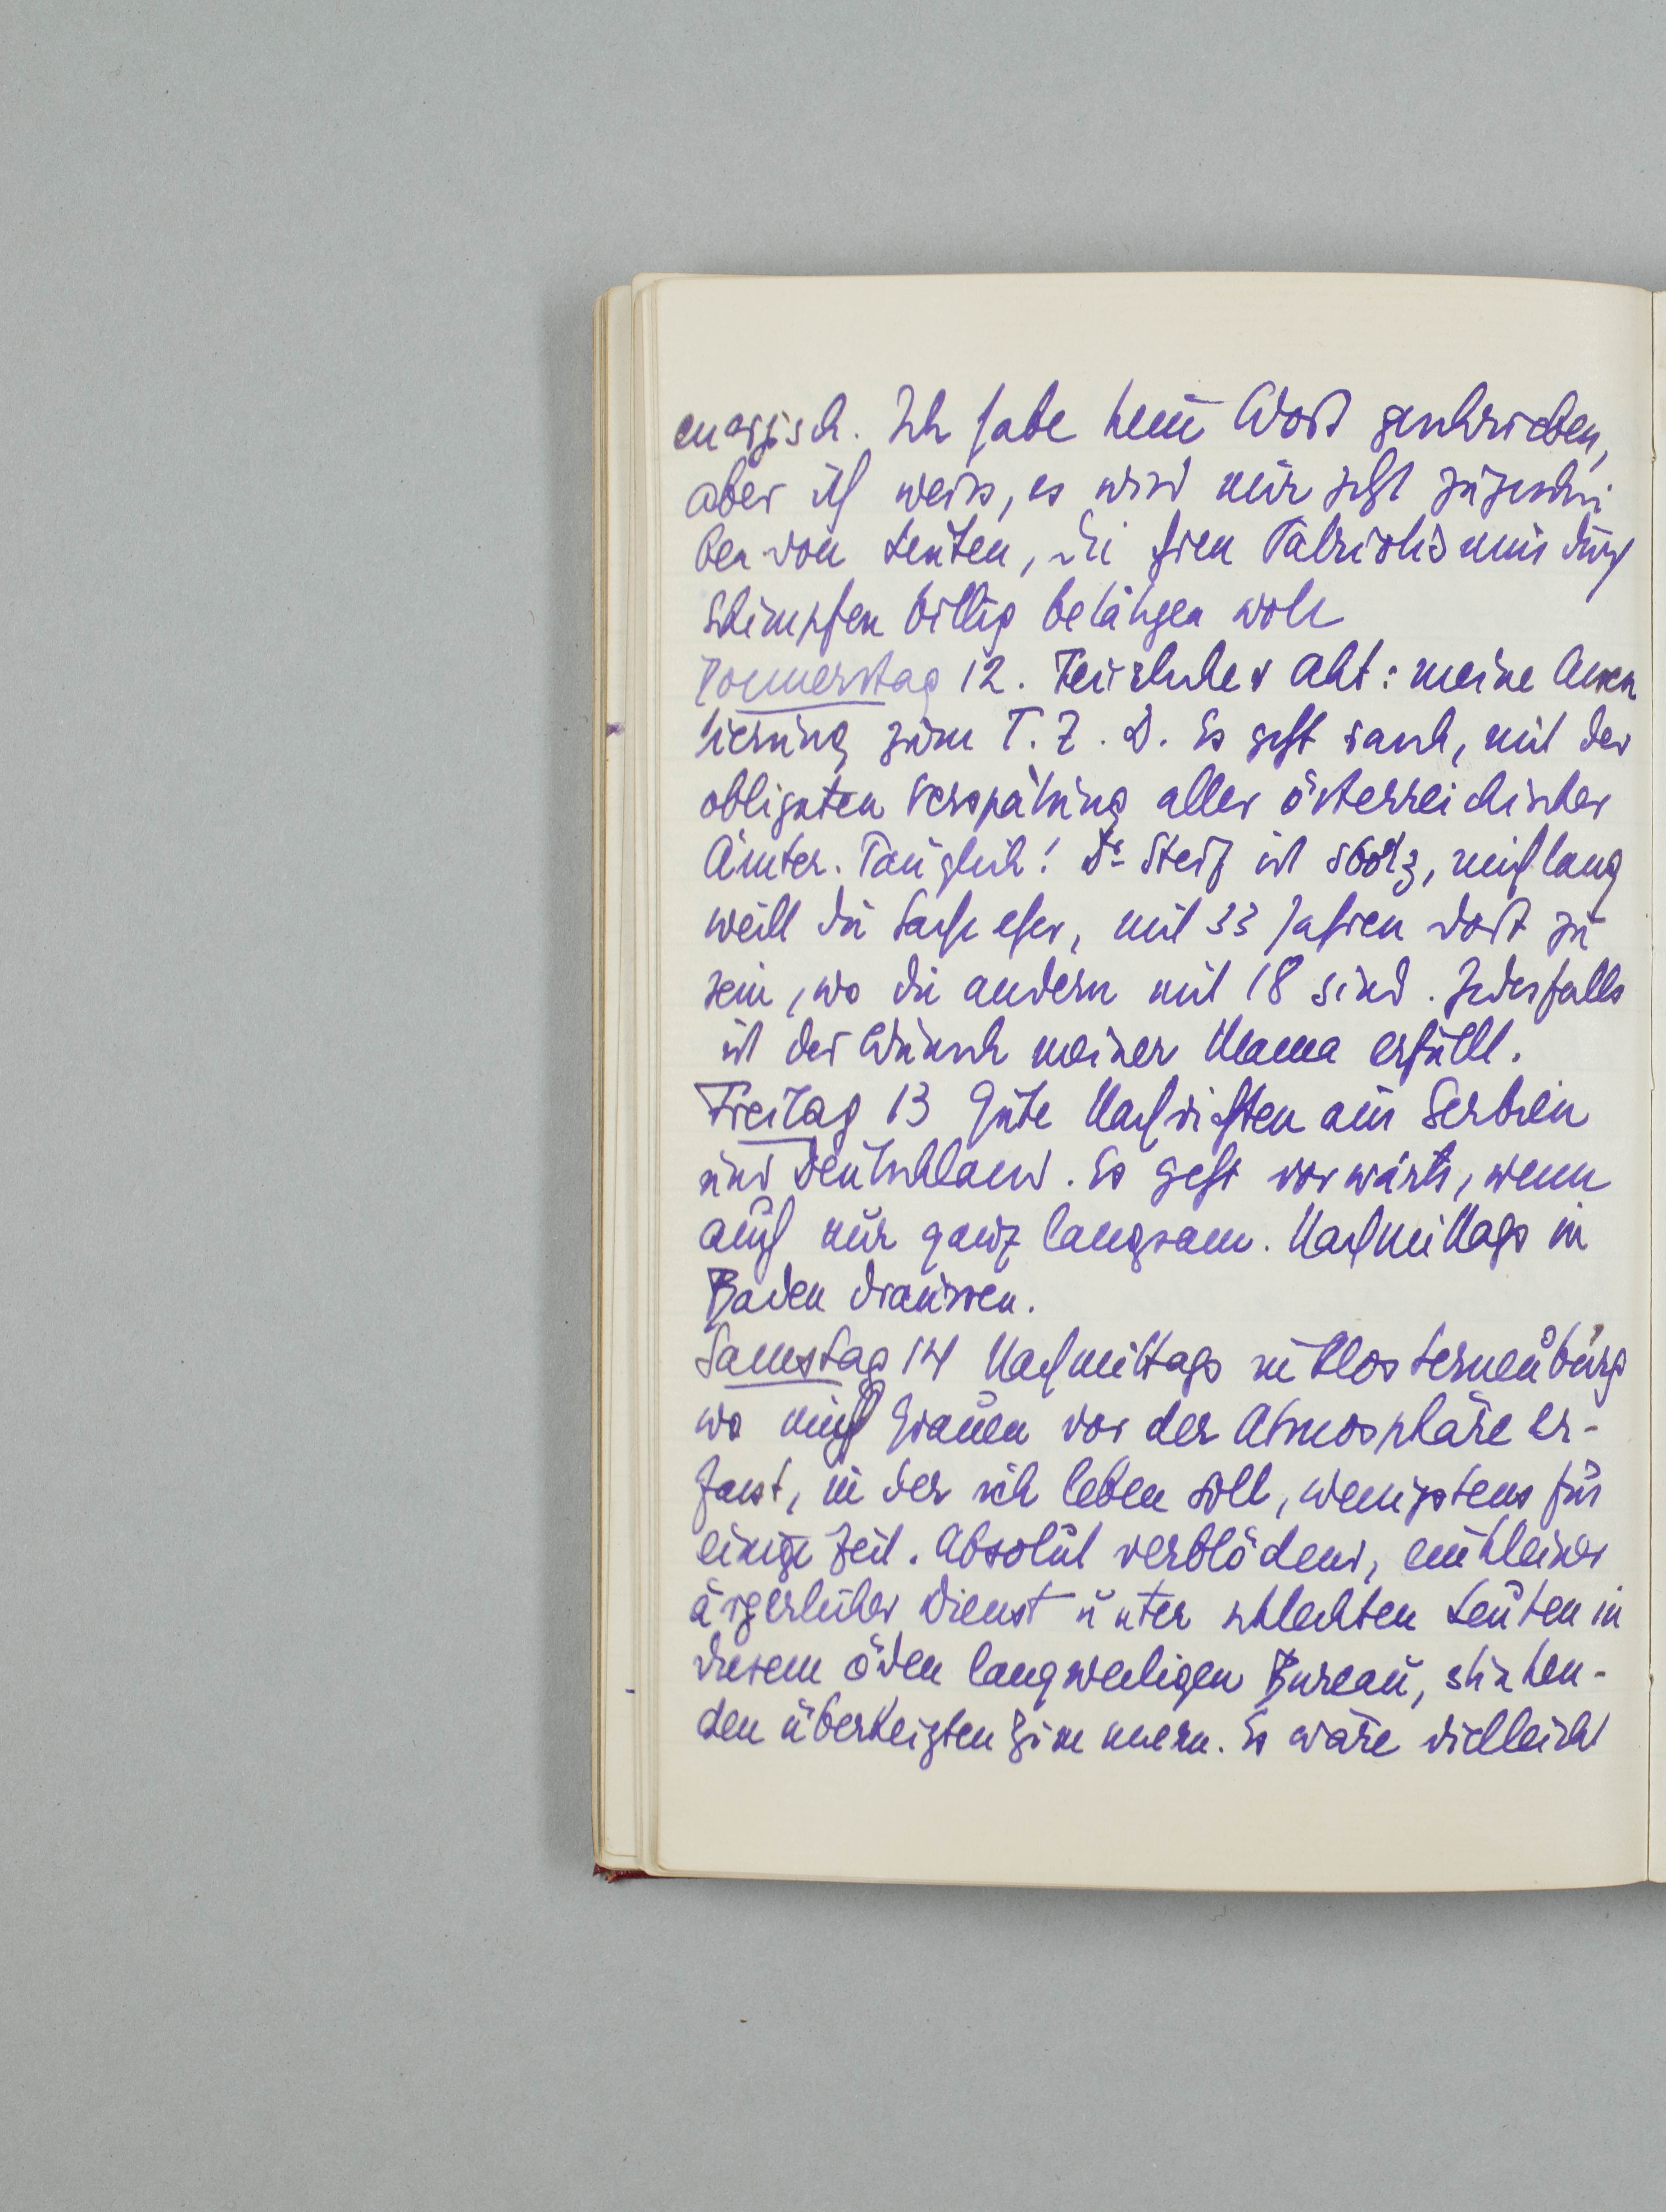 energisch. Ich habe kein Wort geschrieben,
aber ich weiss, es wird mir jetzt zugeschrie
ben von Leuten, die ihren Patriotismus durch
Schimpfen billig betätigen woll
Donnerstag 12. Feierlicher Akt: meine Assen
tierung zum T. Z. D. Es geht rasch, mit der
obligaten Verspätung aller österreichischer
Ämter. Tauglich! Dr Steif ist stolz, mich lang
weilt die Sache eher, mit 33 Jahren dort zu
sein, wo die andern mit 18 sind. Jedesfalls
ist der Wunsch meiner Mama erfüllt.
Freitag 13 Gute Nachrichten aus Serbien
und Deutschland. Es geht vorwärts, wenn
auch nur ganz langsam. Nachmittags in
Baden draussen.
Samstag 14 Nachmittags in Klosterneuburg
wo mich Grauen vor der Atmosphäre er-
fasst, in der ich leben soll, wenigstens für
einige Zeit. Absolut verblödend, ein kleiner
ärgerlicher Dienst unter schlechten Leuten in
diesem öden langweiligen Bureau, stinken-
den überheizten Zimmern. Es wäre vielleicht